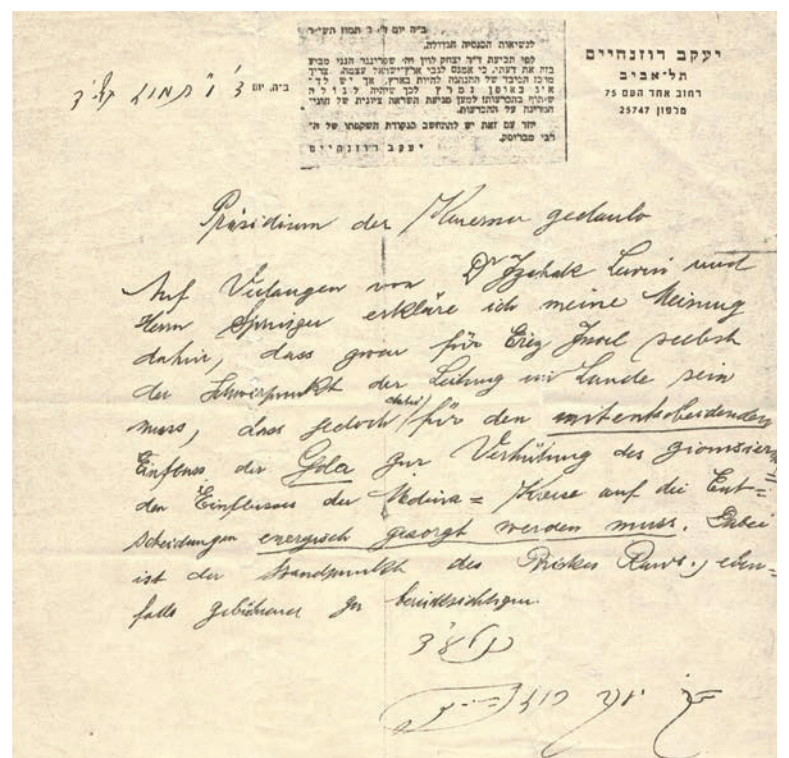 יעקב רוזנהיים
תל־אביב
רחוב אחד העם 75
טלפון 25747
ב״ה, יום ד׳ ו׳ תמוז
לנשיאות הכנסיה הגדולה,
לפי תביעת ד״ר יצחק לוין וה׳ שפרינגר הנני מביע
בזה את דעתי, כי אמנם לגבי ארץ־ישראל עצמה, צריך
מרכז הכובד של ההנהגה להיות בארץ, אך יש לד־
אוג באופן נמרץ לכך שיהיה לגולה
שיתוף בהכרעות למען מניעת השראה ציונית של חוגי
המדינה על ההכרעות.
יחד עם זאת יש להתחשב בנקודת השקפתו של ה־
רבי מבריסק.
יעקב רוזנהיים
ב״ה, יום ד׳ ו׳ תמוז
Präsidium der gedaulo
Auf Verlangen von Dr Izchak Lewin und
Herrn Springer erkläre ich meine Meinung
dahin, dass zwar für Erez Isroel selbst
der Schwerpunkt der Leitung im Lande sein
muss, dass jedoch dabei für den mitentscheidenden
Einfluss der Gola zur Verhütung des zionisieren=
den Einflusses der Medina= Kreise auf die Ent=
scheidungen energisch gesorgt werden muss. Dabei
ist der Standpunkt des Brisker Raws, eben=
falls gebührend zu berücksichtigen.
יעקב רוזנהיים